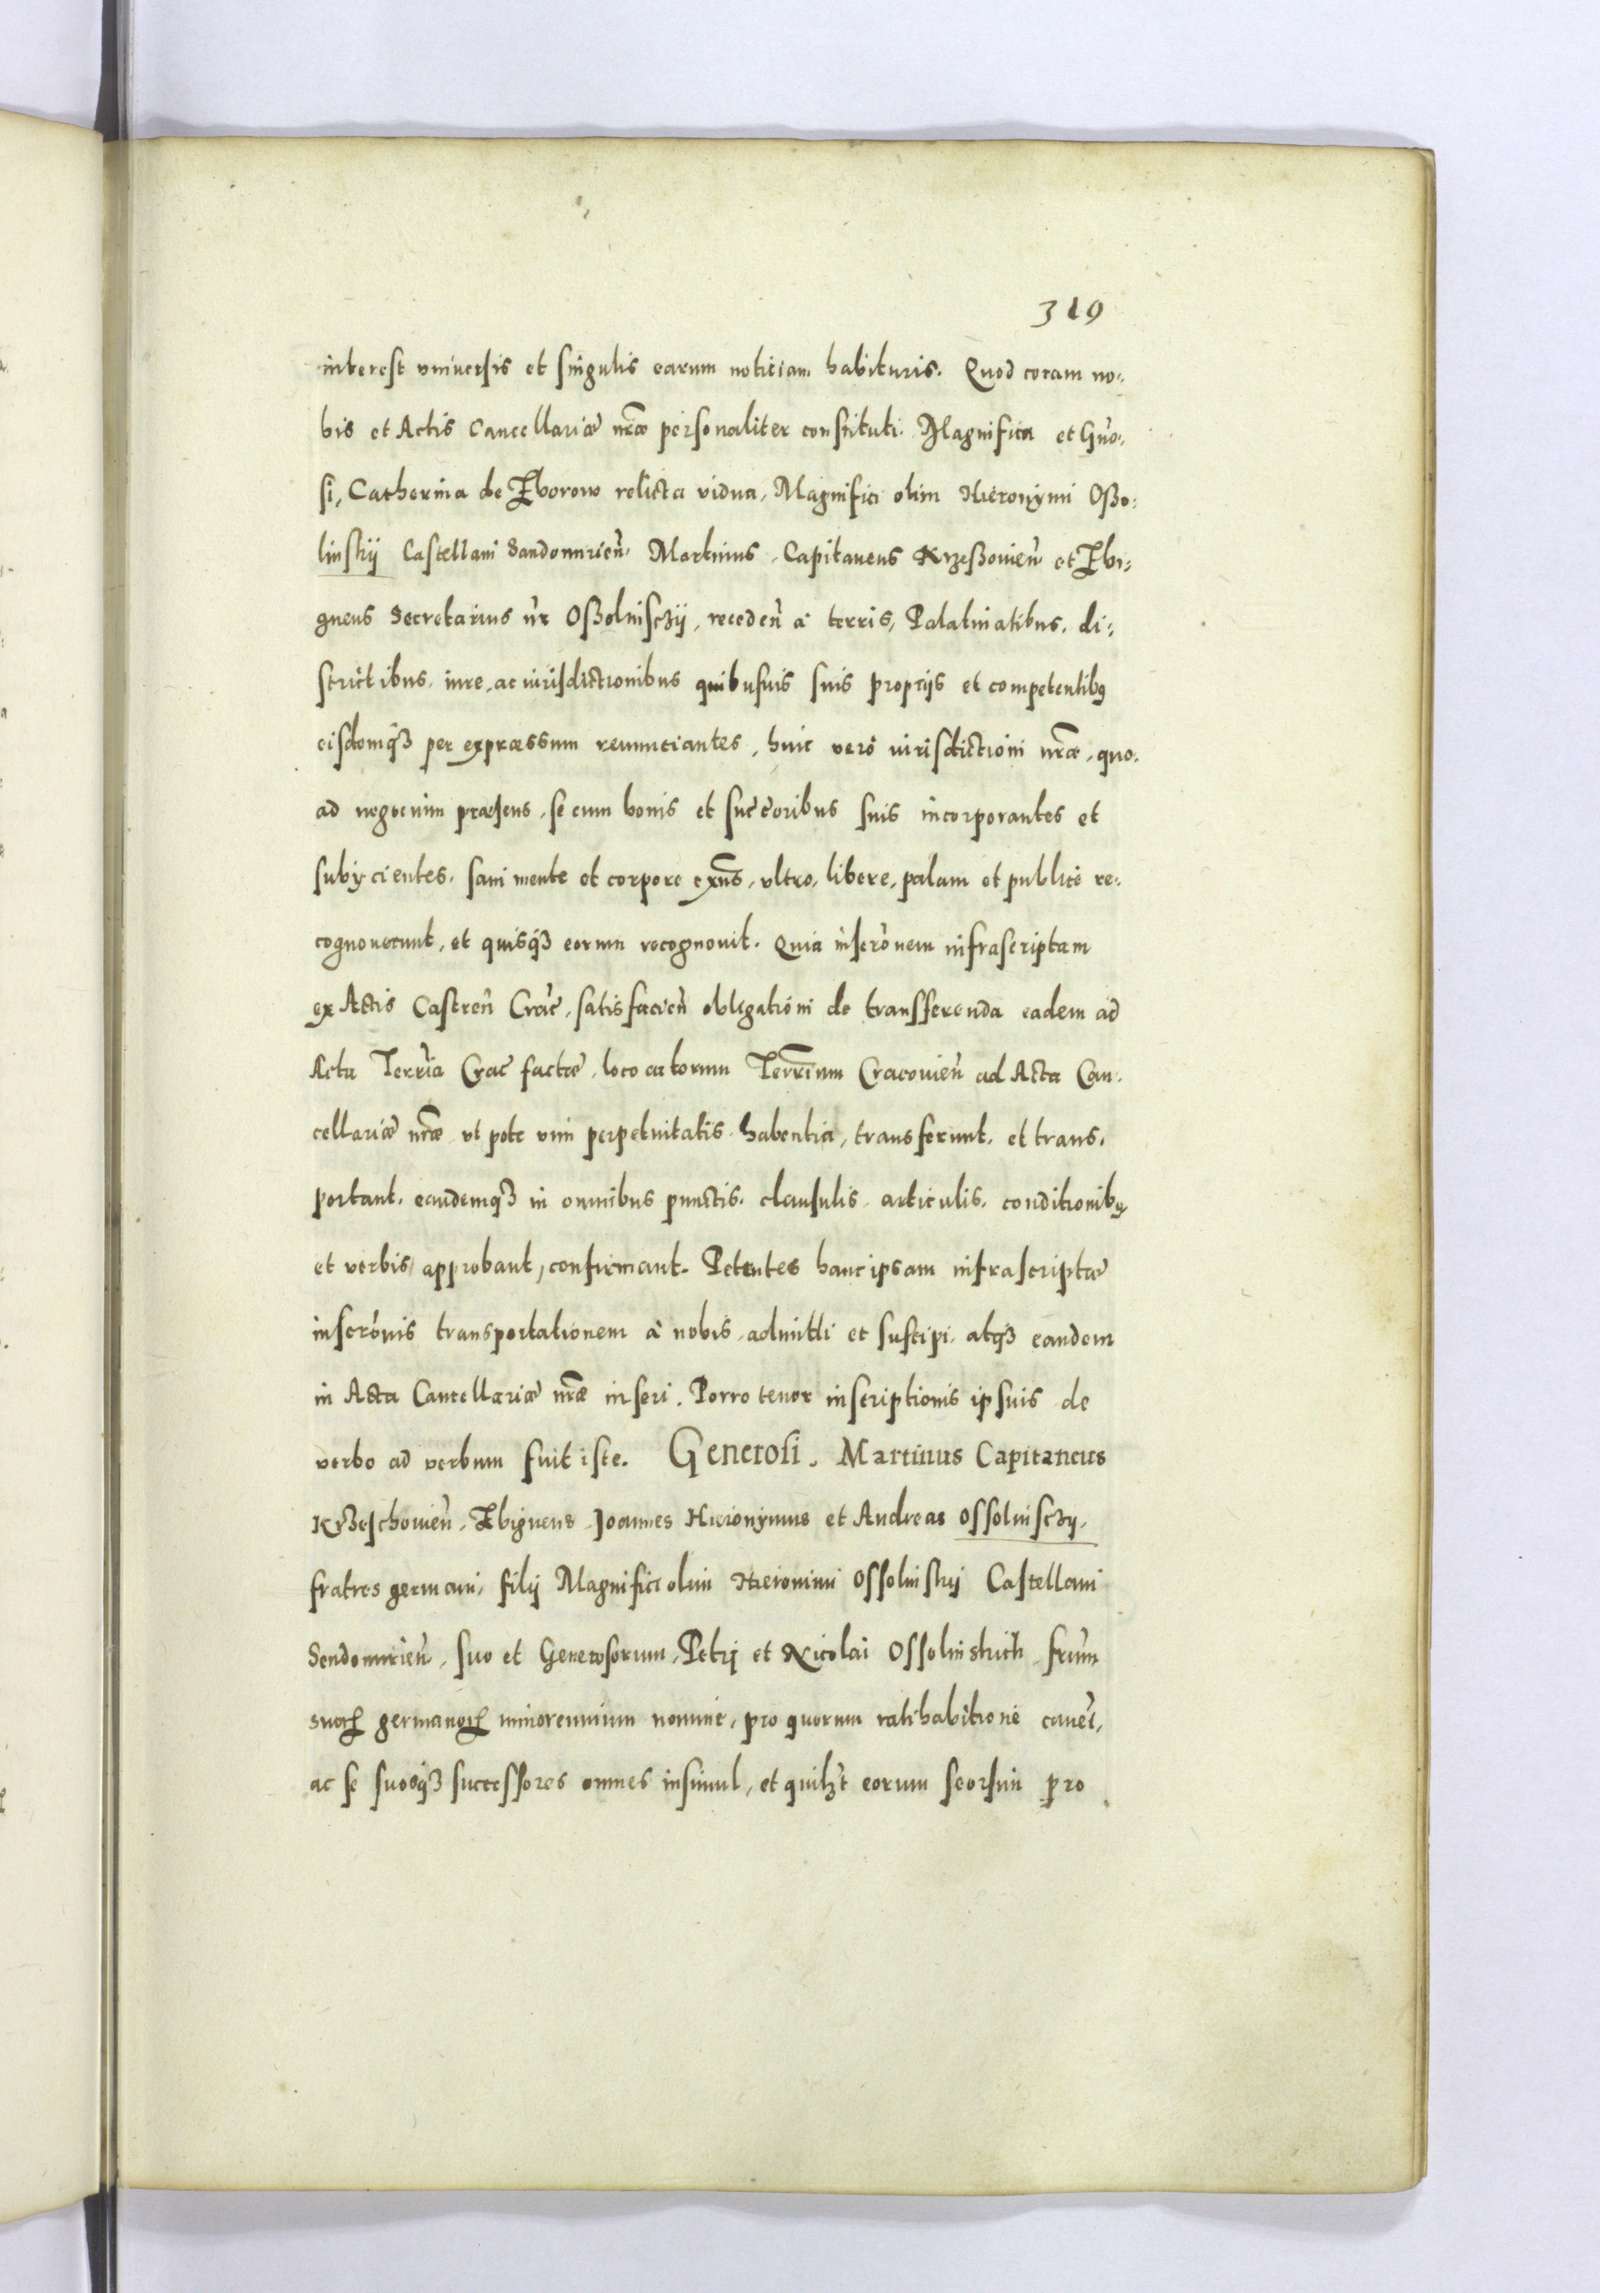 319
interest vniuersis et singulis earum noticiam habituris. Quod coram no-
bis et Actis Cancellariæ nr̃æ personaliter constituti. Magnifica et Gño-
si, Catherina de Zborow relicta vidua, Magnifici olim Hieronymi Oßo-
linskij Castellani Sandomirień. Martinus, Capitaneus Krzeßouień et Zbi-
gneus Secretarius ñr Oßolinsczij, recedeñ à terris, Palatinatibus, di-
strictibus, iure, ac iurisdictionibus quibusuis suis proprijs et competentibꝰ
eisdemqꝫ per expræssum renunciantes, huic verò iurisdictioni nr̃æ, quo-
ad negocium præsens, se cum bonis et succ̃oribus suis incorporantes et
subijcientes. sani mente et corpore exñs, vltro, libere, palam et publicè re-
cognouerunt, et quisqꝫ eorum recognouit. Quia inscrõnem infrascriptam
ex Actis Castreñ Crac̃, satisfacień obligationi de transferenda eadem ad
Acta Terr̃ia Crac̃ factæ, loco actorum Terr̃ium Cracouień ad Acta Can-
cellariæ nr̃æ vt pote vim perpetuitatis habentia, transferunt, et trans-
portant. eandemqꝫ in omnibus punctis, clausulis, articulis, conditionibꝰ
et verbis approbant, confirmant. Petentes hanc ipsam infrascriptæ
inscrõnis transportationem à nobis, admitti et suscipi, atqꝫ eandem
in Acta Cancellariæ nr̃æ inseri. Porro tenor inscriptionis ipsuis de
verbo ad verbum fuit iste. Generosi. Martinus Capitaneus
Krzeschouień, Zbigneus, Joannes Hieronymus et Andreas Ossolinsczij,
fratres germani, filij Magnifici olim Hieronimi Ossolinskij Castellani
Sendomirień, suo et Generosorum, Petri et Nicolai Ossolinskich fr̃um
suoꝝ germanoꝝ minorennium nomine, pro quorum ratihabitione caueñ,
ac se suosqꝫ successores omnes insimul, et quilꝫt eorum seorsim pro